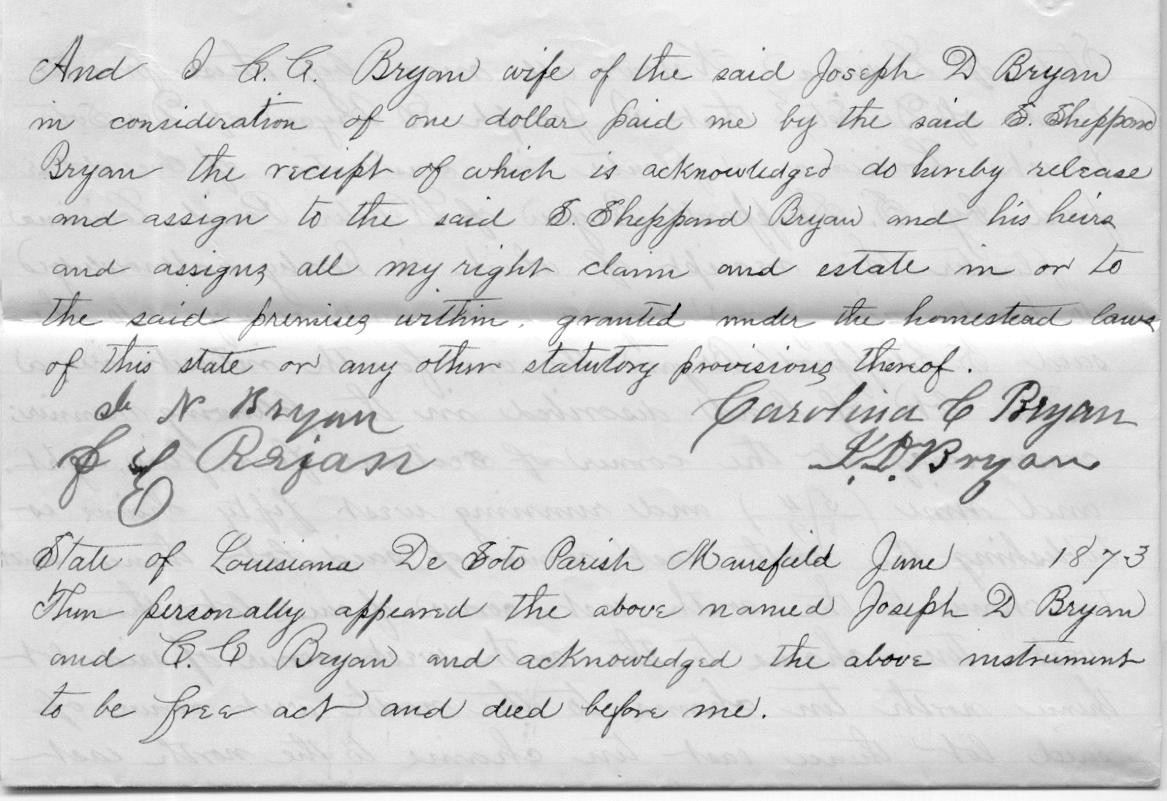 And I C. C. Bryan wife of the said Joseph D Bryan
in consideration of one dollar paid me by the said S. Sheppard
Bryan the receipt of which is acknowledged do hereby release
and assign to the said S. Sheppard Bryan and his heirs
and assigns all my right claim and estate in or to
the said premises within granted under the homestead laws
of this state or any other statutory provisions thereof.
N Bryan Carolina C Bryan
J. D. Bryan
State of Louisiana De Soto Parish Mansfield June 1873
Then personally appeared the above named Joseph D Bryan
and C. C Bryan and acknowledged the above instrument
to be free act and deed before me.